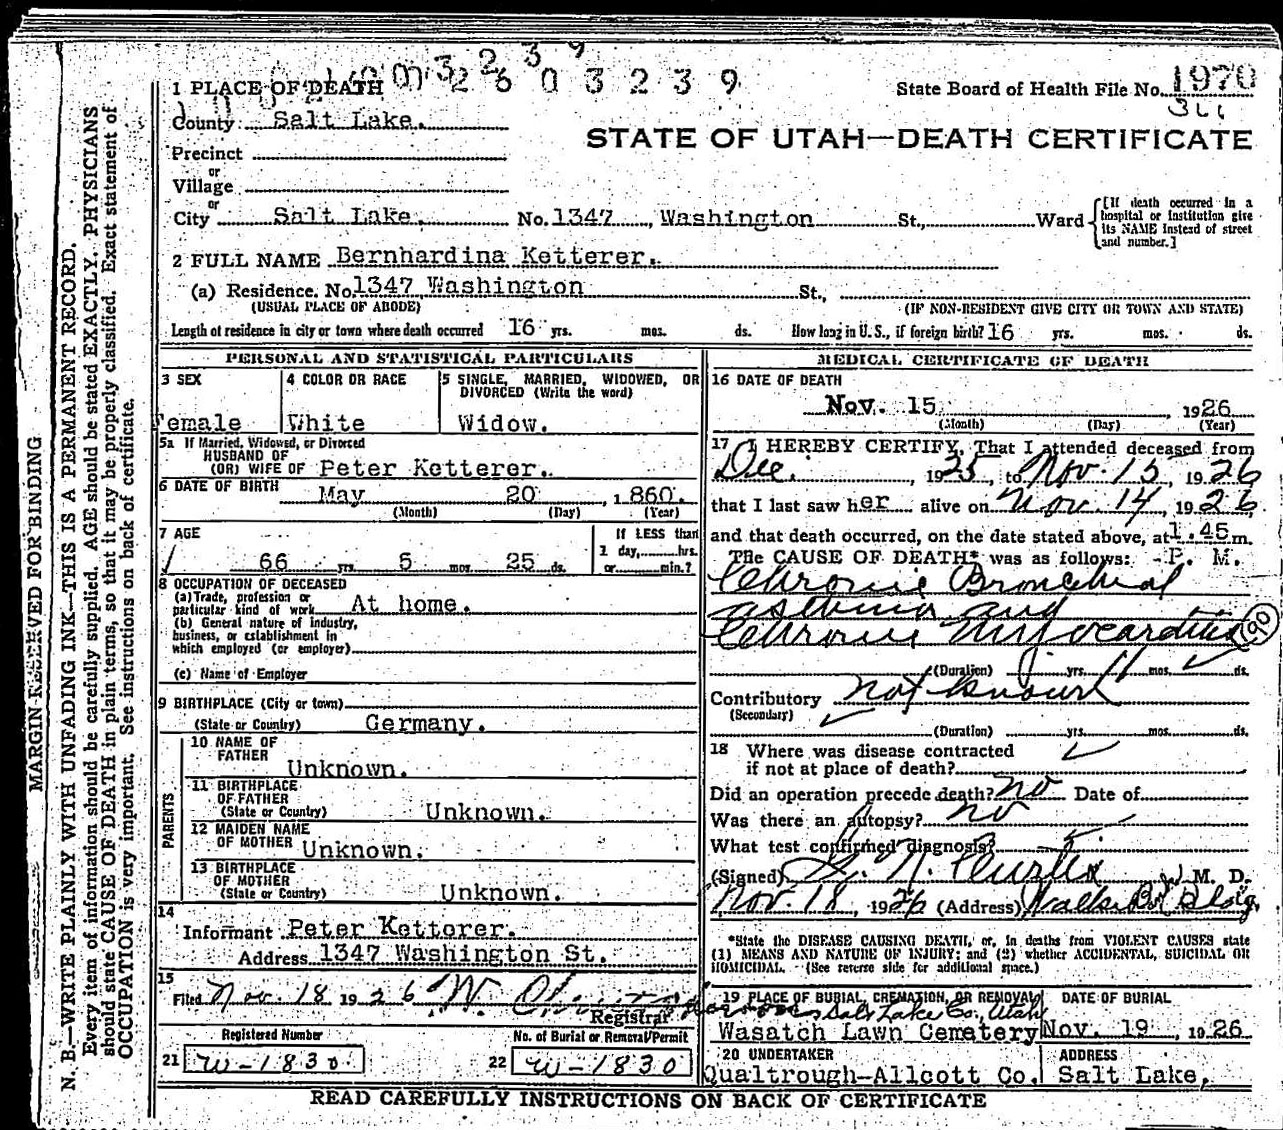 MARGIN RESERVED FOR BINDING
N. B.—WRITE PLAINLY WITH UNFADING INK—THIS IS A PERMANENT RECORD.
Every item of information should be carefully supplied. AGE should be stated EXACTLY. PHYSICIANS
should state CAUSE OF DEATH in plain terms, so that it may be properly classified. Exact statement of
OCCUPATION is very important. See instructions on back of certificate.
2603239
1 PLACE OF DEATH
State Board of Health File No. 1970
County Salt Lake.
STATE OF UTAH—DEATH CERTIFICATE
Precinct
or
Village
or
City Salt Lake. No. 1347 Washington St., Ward
[If death occurred in a
hospital or institution give
its NAME instead of street
and number.]
2 FULL NAME Bernhardina Ketterer.
(a) Residence. No. 1347 Washington St.,
(USUAL PLACE OF ABODE) (IF NON-RESIDENT GIVE CITY OR TOWN AND STATE)
Length of residence in city or town where death occurred 16 yrs. mos. ds. How long in U.S., if foreign birth? 16 yrs. mos. ds.
PERSONAL AND STATISTICAL PARTICULARS
3 SEX 4 COLOR OR RACE 5 SINGLE, MARRIED, WIDOWED, OR
DIVORCED (Write the word)
Female White Widow.
5a If Married, Widowed, or Divorced
HUSBAND OF
(OR) WIFE OF Peter Ketterer.
6 DATE OF BIRTH May 20, 1860.
(Month) (Day) (Year)
7 AGE If LESS than
1 day, hrs.
66 yrs. 5 mos. 25 ds. or min.?
8 OCCUPATION OF DECEASED
(a) Trade, profession or
particular kind of work At home.
(b) General nature of industry,
business, or establishment in
which employed (or employer)
(c) Name of Employer
9 BIRTHPLACE (City or town)
(State or Country) Germany.
PARENTS
10 NAME OF
FATHER Unknown.
11 BIRTHPLACE
OF FATHER
(State or Country) Unknown.
12 MAIDEN NAME
OF MOTHER Unknown.
13 BIRTHPLACE
OF MOTHER
(State or Country) Unknown.
14
Informant Peter Ketterer.
Address 1347 Washington St.
15
Filed Nov. 18 1926 W.
Registrar
Registered Number No. of Burial or Removal Permit
21 W-1830 22 W-1830
MEDICAL CERTIFICATE OF DEATH
16 DATE OF DEATH
Nov. 15, 1926
(Month) (Day) (Year)
17 I HEREBY CERTIFY, That I attended deceased from
Dec. , 1925, to Nov. 15, 1926
that I last saw her alive on Nov. 14, 1926,
and that death occurred, on the date stated above, at 1.45 m.
The CAUSE OF DEATH* was as follows: P. M.
Chronic Bronchial
asthma and
Chronic Myocarditis 90
(Duration) yrs. 11 mos. ds.
Contributory not known
(Secondary)
(Duration) yrs. mos. ds.
18 Where was disease contracted
if not at place of death?
Did an operation precede death? no Date of
Was there an autopsy? no
What test confirmed diagnosis?
(Signed) Curtis M. D.
Nov. 18, 1926 (Address) Walker Bk Bldg.
*State the DISEASE CAUSING DEATH, or, in deaths from VIOLENT CAUSES state
(1) MEANS AND NATURE OF INJURY; and (2) whether ACCIDENTAL, SUICIDAL OR
HOMICIDAL. (See reverse side for additional space.)
19 PLACE OF BURIAL, CREMATION, OR REMOVAL DATE OF BURIAL
Salt Lake Co., Utah
Wasatch Lawn Cemetery Nov. 19, 1926
20 UNDERTAKER ADDRESS
Qualtrough-Allcott Co. Salt Lake,
READ CAREFULLY INSTRUCTIONS ON BACK OF CERTIFICATE